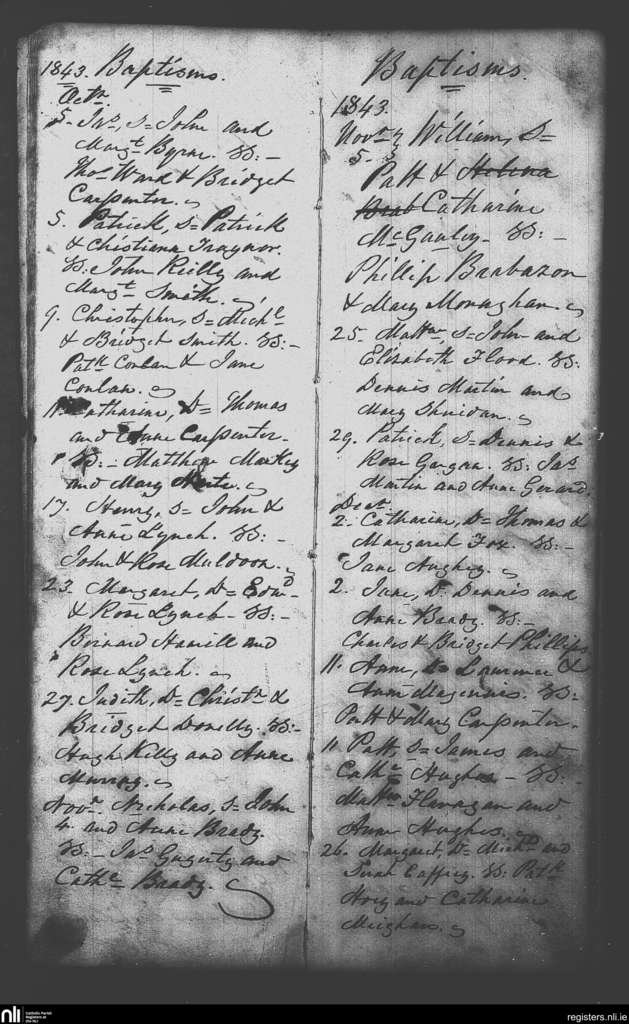 1843. Baptisms.
Octr.
5. Jas, s= John and
Margt Byrne. SS: -
Thos Ward & Bridget
Carpenter.
5. Patrick, s= Patrick
& Christiana Traynor.
SS. John Reilly and
Margt Smith.
9. Christopher, s= Michl
& Bridget Smith. SS: -
Patk Conlan & Jane
Conlan.
11. Catharine, D= Thomas
and Anne Carpenter.
SS: - Matthew Markey
and Mary
17. Henry, s= John &
Anne Lynch. SS: -
John & Rose Muldoon.
23. Margaret, D= Edwd
& Rose Lynch - SS: -
Bernard Hamill and
Rose Lynch.
27. Judith, D= Christr &
Bridget Donelly. SS: -
Hugh Kelly and Anne
Murray.
Novr. Nicholas, s= John
4. and Anne Brady.
SS. - Jas Gugerty and
Cathe Brady.
Baptisms.
1843.
Novr William, S=
5. Patt & Helena
Brab Catharine
McGauley - SS: -
Phillip Brabazon
& Mary Monaghan.
25. Mattw, s= John and
Elizabeth Flood. SS:
Dennis Martin and
Mary Sheridan.
29. Patrick, S= Dennis &
Rose Gargan. SS: Jas
Martin and Anne Gerard.
Decr.
2. Catharine, D= Thomas &
Margaret Fox. SS: -
Jane Aughey.
2. Jane, D. Dennis and
Anne Brady. SS. -
Charles & Bridget Phillips.
11. Anne, D= Lawrence &
Anne Magennis. SS:
Patt & Mary Carpenter.
11. Patt, S= James and
Cathe Hughes - SS: -
Mattw Flanagan and
Anne Hughes.
26. Margaret, D= Michl and
Caffrey. SS: Patk
Hoey and Catharine
Meighan.
nli
Catholic Parish
Registers at
the NLI
registers.nli.ie